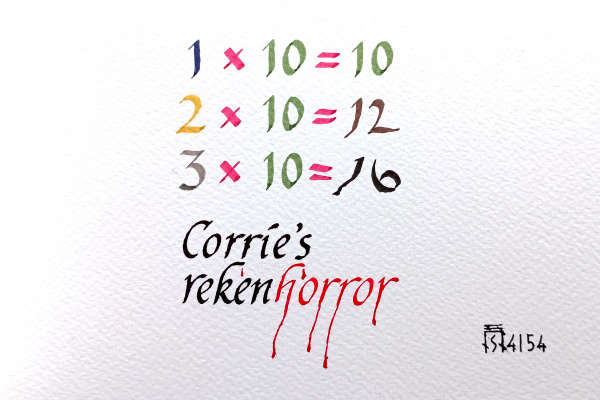 1 × 10 = 10
2 × 10 = 12
3 × 10 = 16
Corrie's
rekenhorror
4154